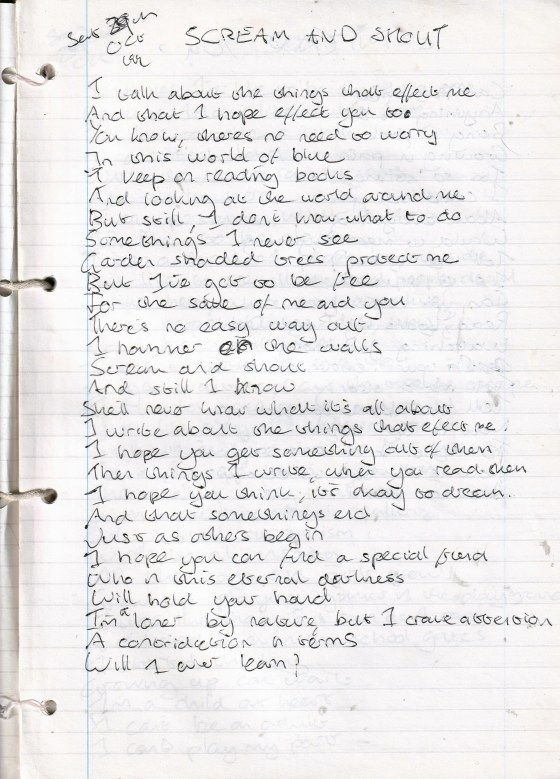 Sent
Oct
SCREAM AND SHOUT
I talk about the things that effect me
And that I hope effect you too.
You know, theres no need to worry
In this world of blue
I keep on reading books
And looking at the world around me.
But still, I dont know what to do
Somethings I never see
Garden shaded trees protect me
But I've got to be free
For the sake of me and you
There's no easy way out
I hammer on the walls
Scream and shout
And still I know
Shell never know what it's all about
I write about the things that efect me.
I hope you get something out of them
Ther things I write, when you read them
I hope you think, it's okay to dream.
And that somethings end,
Just as others begin
I hope you can find a special friend
Who n this eternal darkness
Will hold your hand
I'm a loner by nature, but I crave attention
A contridiction n terms
Will I ever learn?